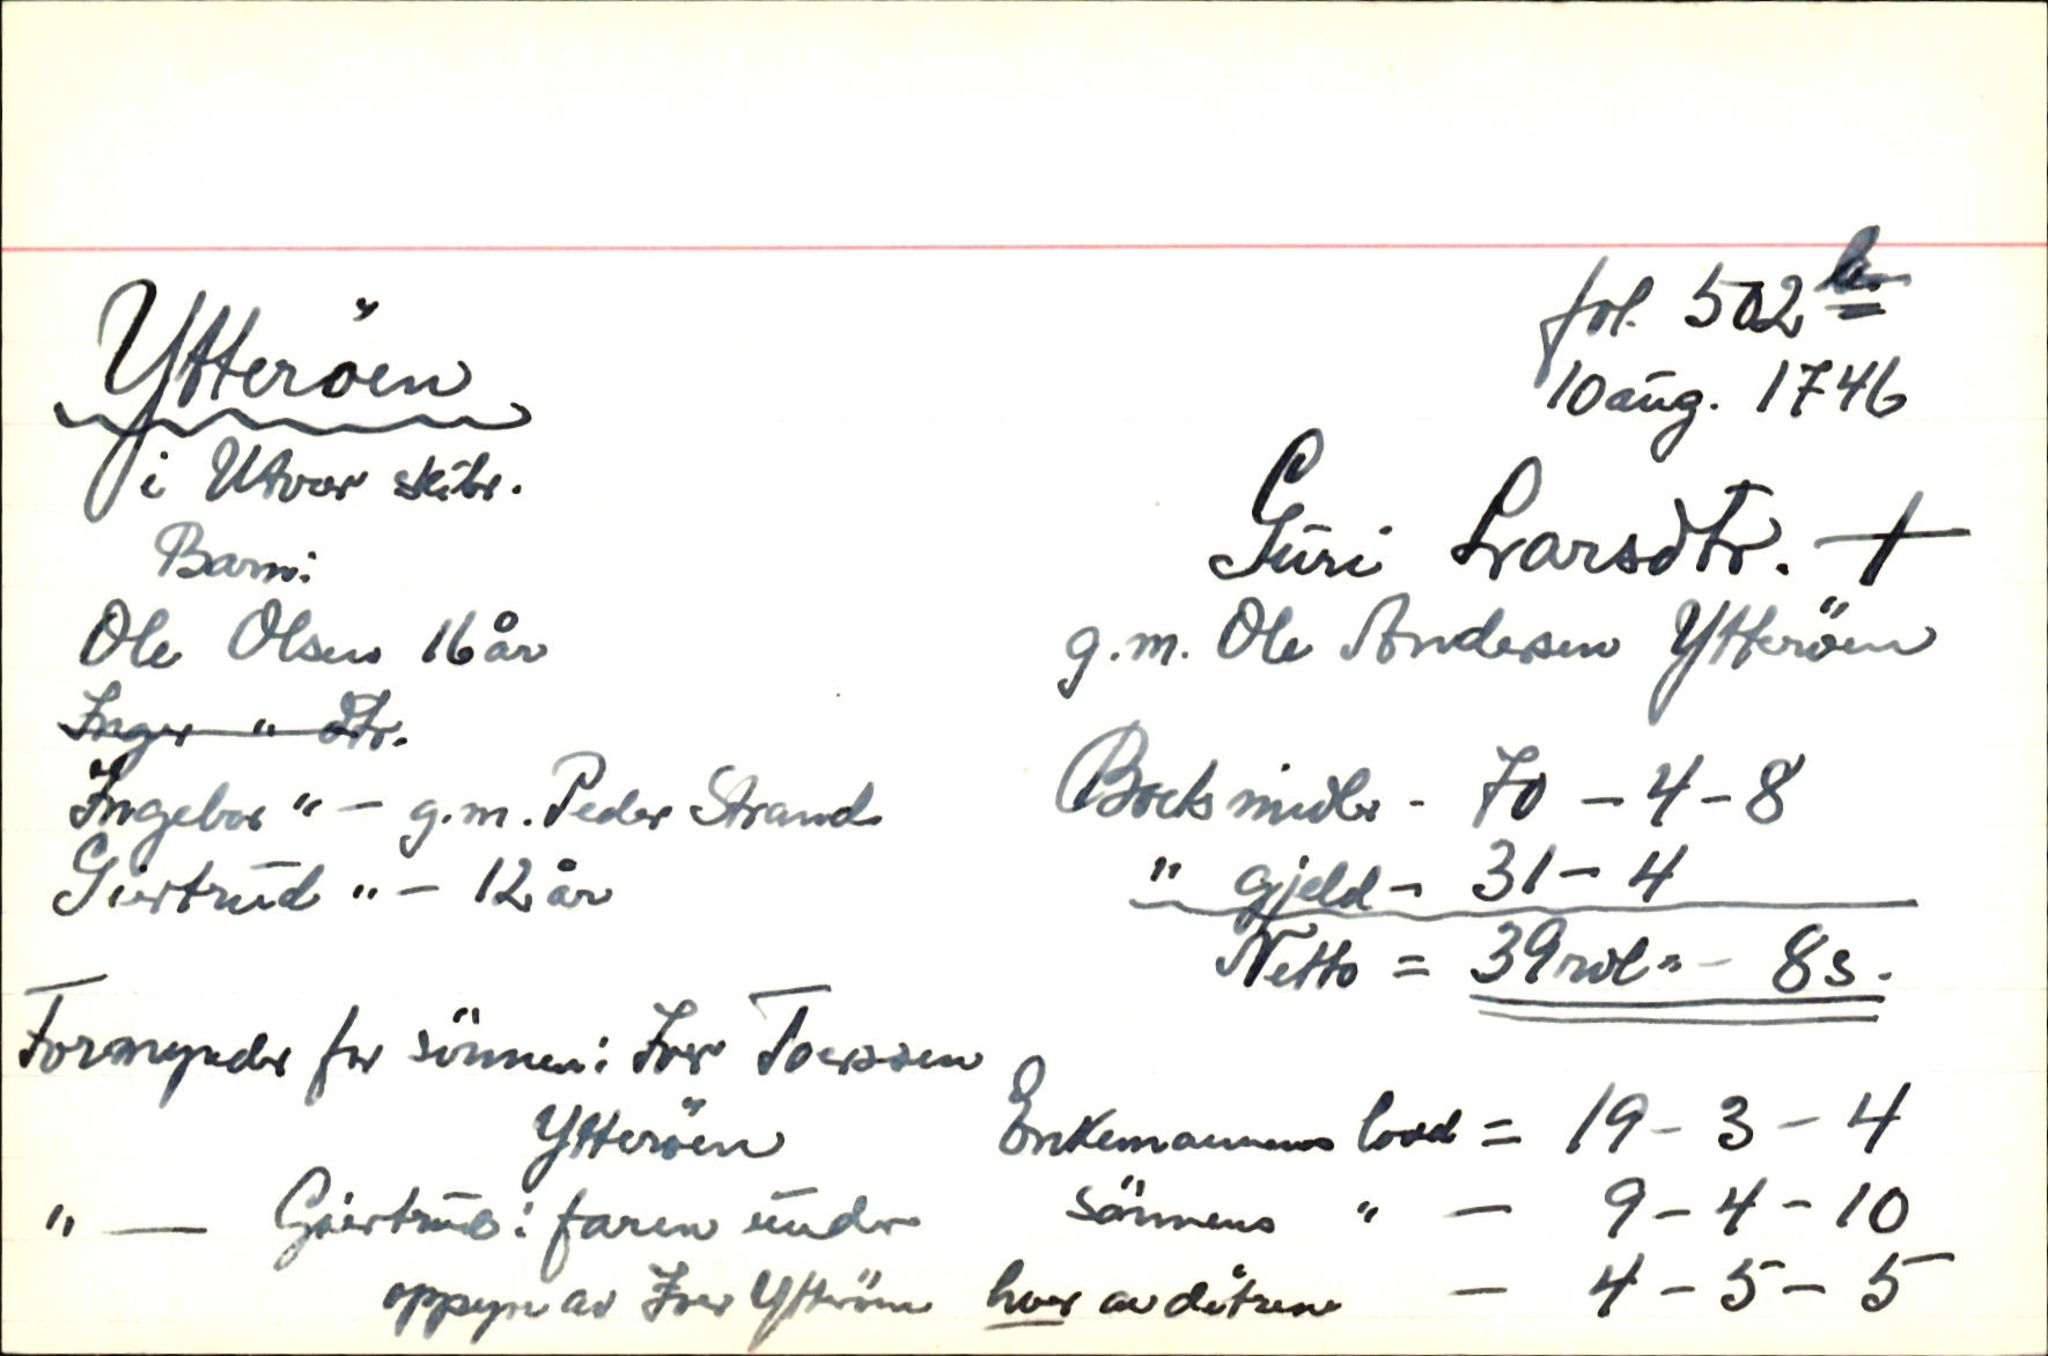 fol. 502 b
10 aug. 1746
Ytteröen
i Utvær skibr.
Guri Ivarsdtr. +
g.m. Ole Andersen Ytteröen
Barn:
Ole Olsen 16 år
Inger " dtr.
Ingebor " - g.m. Peder Strand
Giertrud " - 12 år
Boets midler - 70 - 4 - 8
" gjeld - 31 - 4
Netto = 39 rdl " - 8 s.
Formynder for sönnen: Iver Toerssen
Ytteröen
" — Giertrud: faren under
oppsyn av Iver Ytteröen
Enkemannens lood = 19 - 3 - 4
sönnens " - 9 - 4 - 10
hver av dötrene - 4 - 5 - 5